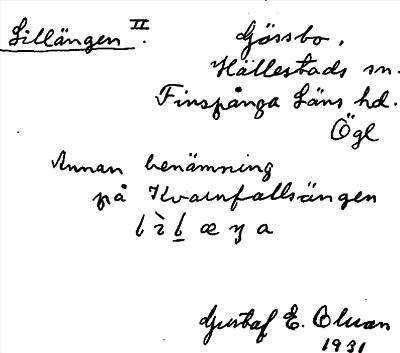 Lillängen II. Gössbo.
Hällestads sn.
Finspånga Läns hd.
Ögl
Annan benämning
på Kvarnfallsängen
Gustaf E. Olsson
1931